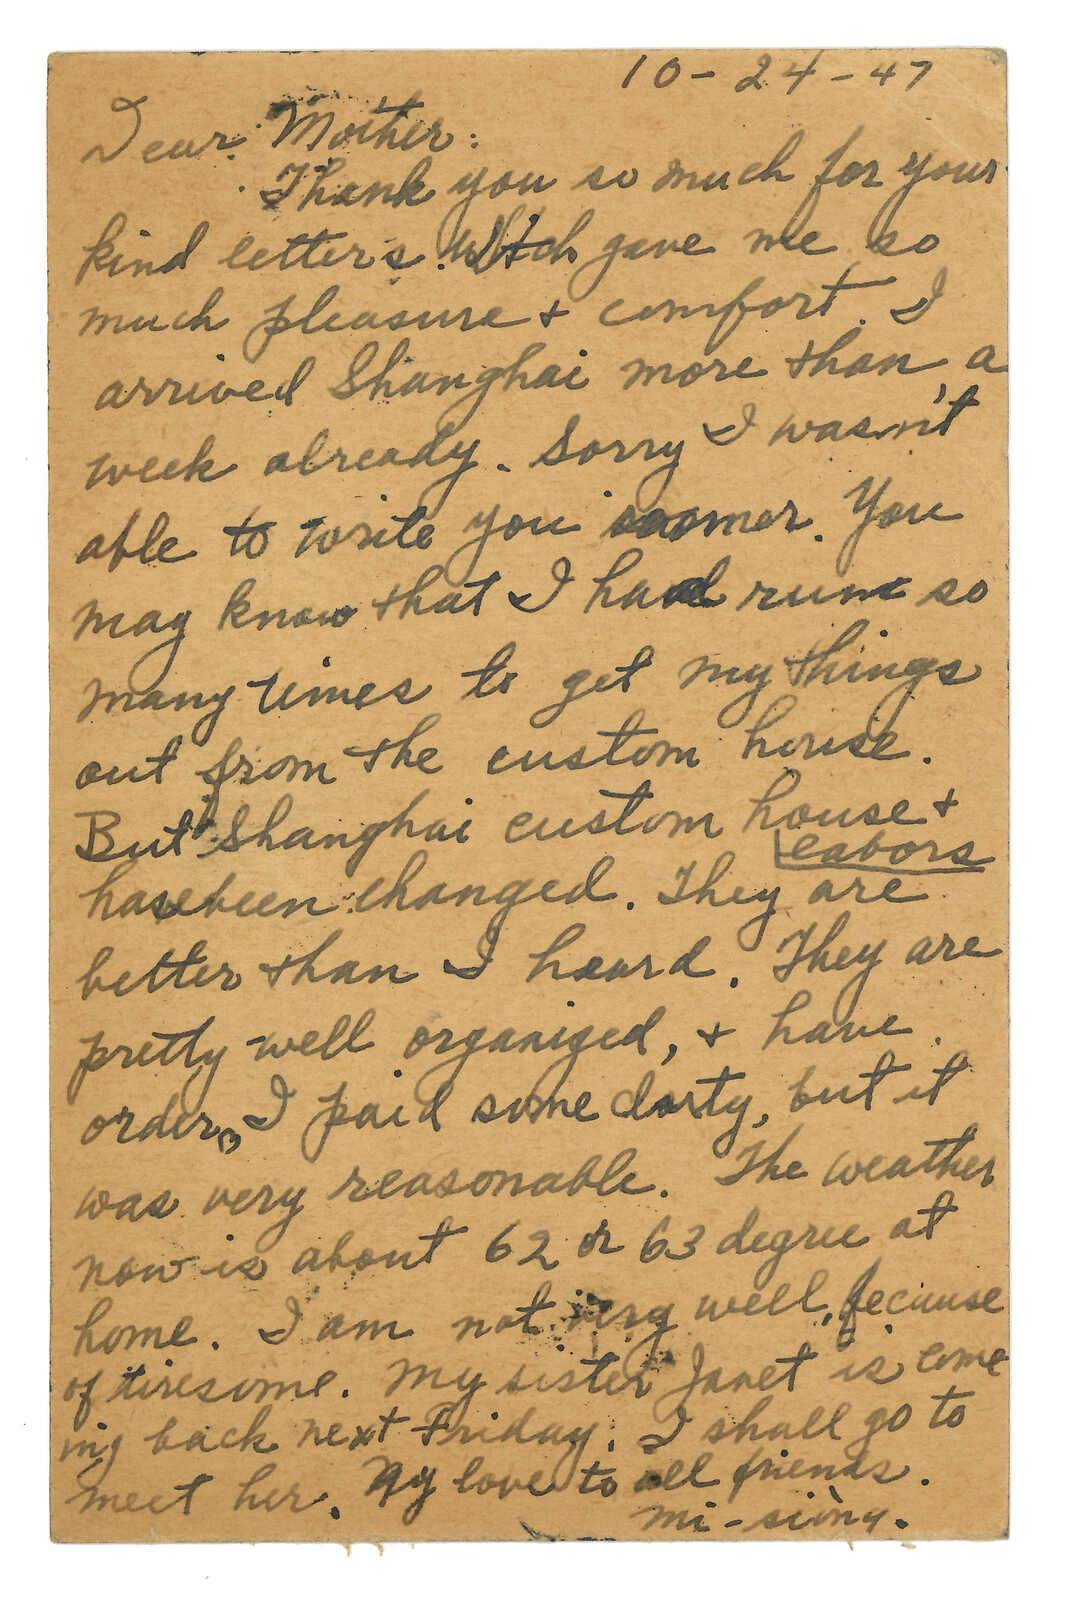 10-24-47
Dear Mother:
Thank you so much for your
kind letters. Witch gave me so
much pleasure & comfort. I
arrived Shanghai more than a
week already. Sorry I wasn't
able to write you soomer. You
may know that I had rum so
many times to get my things
out from the custom house.
But Shanghai custom house &
labors
have been changed. They are
better than I heard. They are
pretty well organized, & have
order. I paid some darty, but it
was very reasonable. The weather
now is about 62 or 63 degree at
home. I am not very well, because
of tiresome. My sister Janet is come
ing back next Friday. I shall go to
meet her. My love to all friends.
mi-siung.